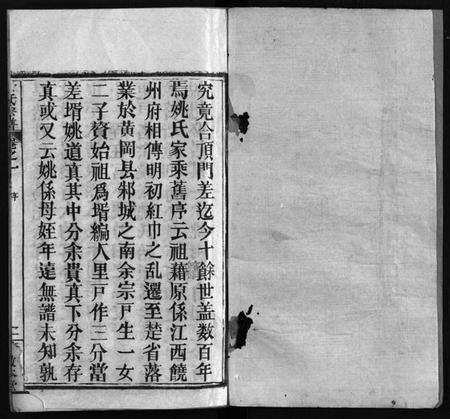 究竟合頂門差迄今十餘世蓋數百年
焉姚氏家乘舊序云祖藉原係江西饒
州府相傳明初紅巾之亂遷至楚省落
業於黃岡縣邾城之南余宗戸生一女
二子贅始祖爲壻編入里戸作三分當
差壻姚道真其中分余貴真下分余存
真或又云姚係母姪年遠無譜未知孰
氏宗譜卷之一 序